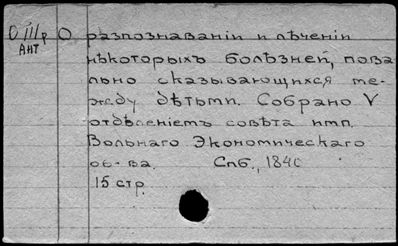 О III/р
АНТ
О разпознаваніи и лѣченіи
нѣкоторыхъ болѣзней, пова
льно сказывающихся ме-
жду дѣтьми. Собрано V
отдѣленіемъ совѣта имп.
Вольнаго Экономическаго
об-ва. Спб., 1840
15 стр.